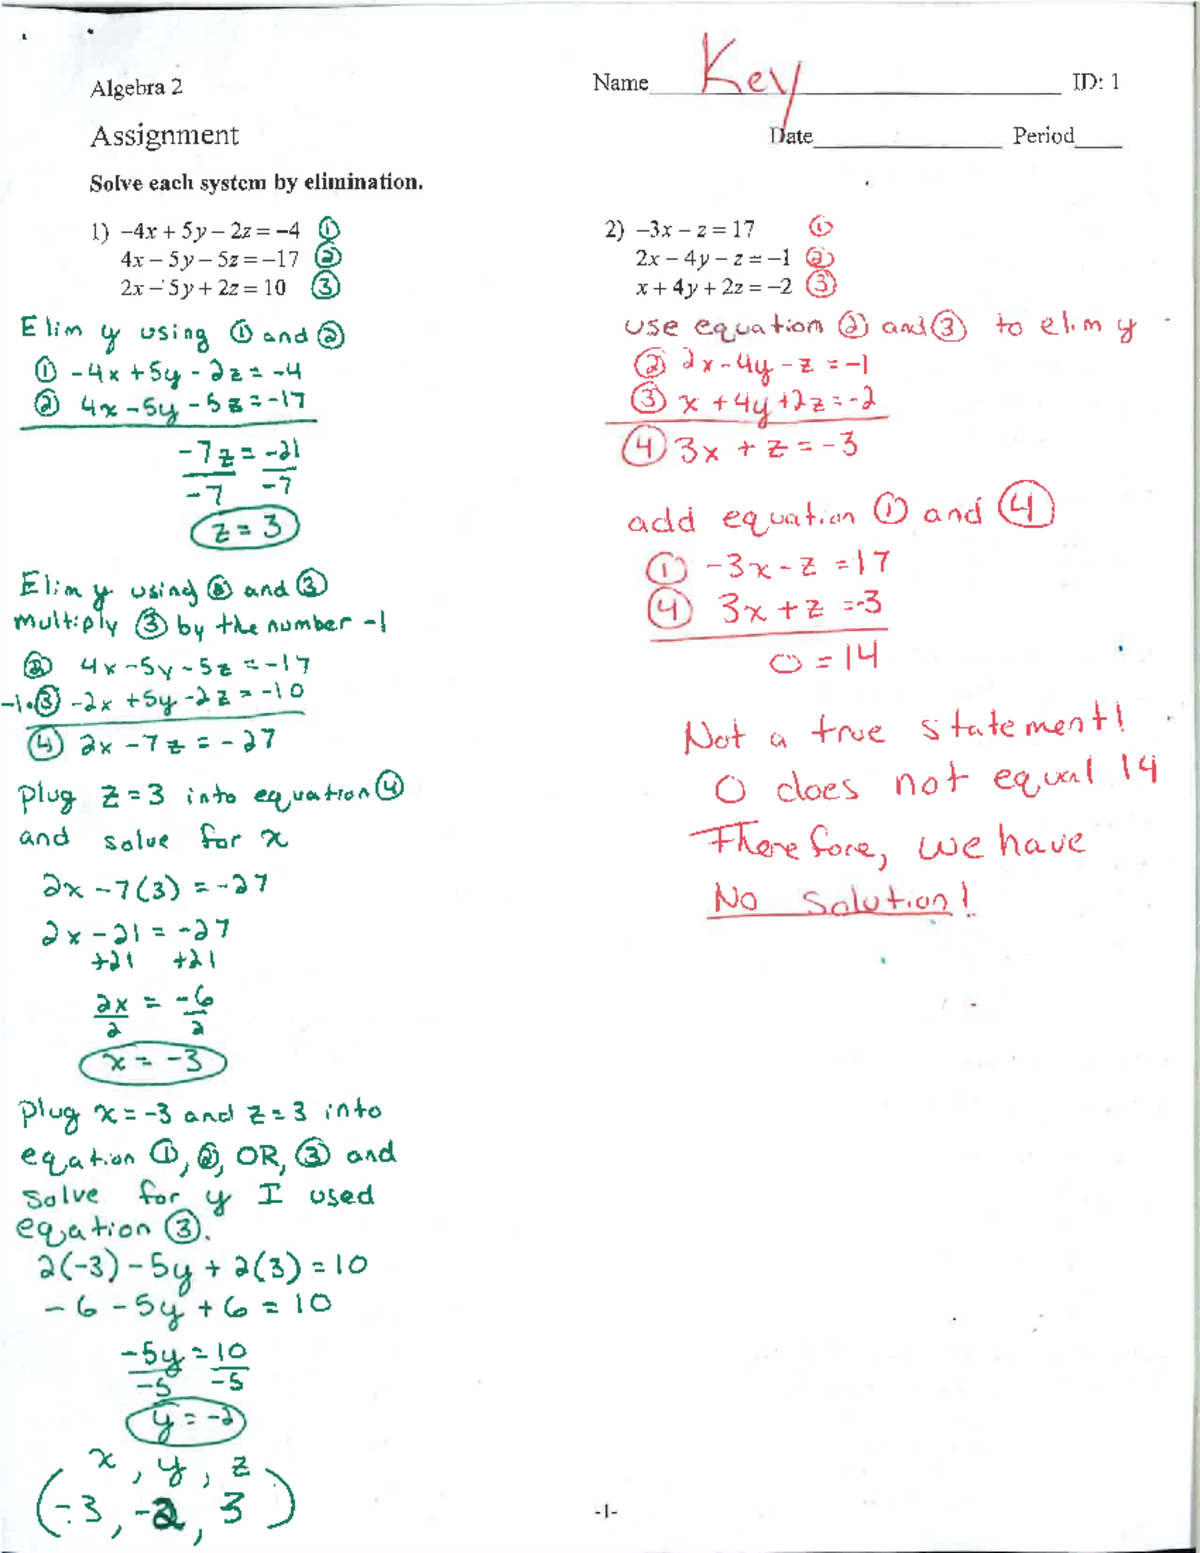 Algebra 2
Name Key ID: 1
Assignment
Date Period
Solve each system by elimination.
1) −4x + 5y − 2z = −4 ①
4x − 5y − 5z = −17 ②
2x − 5y + 2z = 10 ③
Elim y using ① and ②
① -4x + 5y - 2z = -4
② 4x - 5y - 5z = -17
-7z = -21
-7 -7
z = 3
Elim y using ② and ③
multiply ③ by the number -1
② 4x - 5y - 5z = -17
-1•③ -2x + 5y - 2z = -10
④ 2x - 7z = -27
plug z = 3 into equation ④
and solve for x
2x - 7(3) = -27
2x - 21 = -27
+21 +21
2x = -6
2 2
x = -3
plug x = -3 and z = 3 into
eqation ①, ②, OR, ③ and
solve for y I used
eqation ③.
2(-3) - 5y + 2(3) = 10
-6 - 5y + 6 = 10
-5y = 10
-5 -5
y = -2
x, y, z
(-3, -2, 3)
2) −3x − z = 17 ①
2x − 4y − z = −1 ②
x + 4y + 2z = −2 ③
use equation ② and ③ to elim y
② 2x - 4y - z = -1
③ x + 4y + 2z = -2
④ 3x + z = -3
add equation ① and ④
① -3x - z = 17
④ 3x + z = -3
0 = 14
Not a true statement!
0 does not equal 14
Therefore, we have
No Solution!
-1-